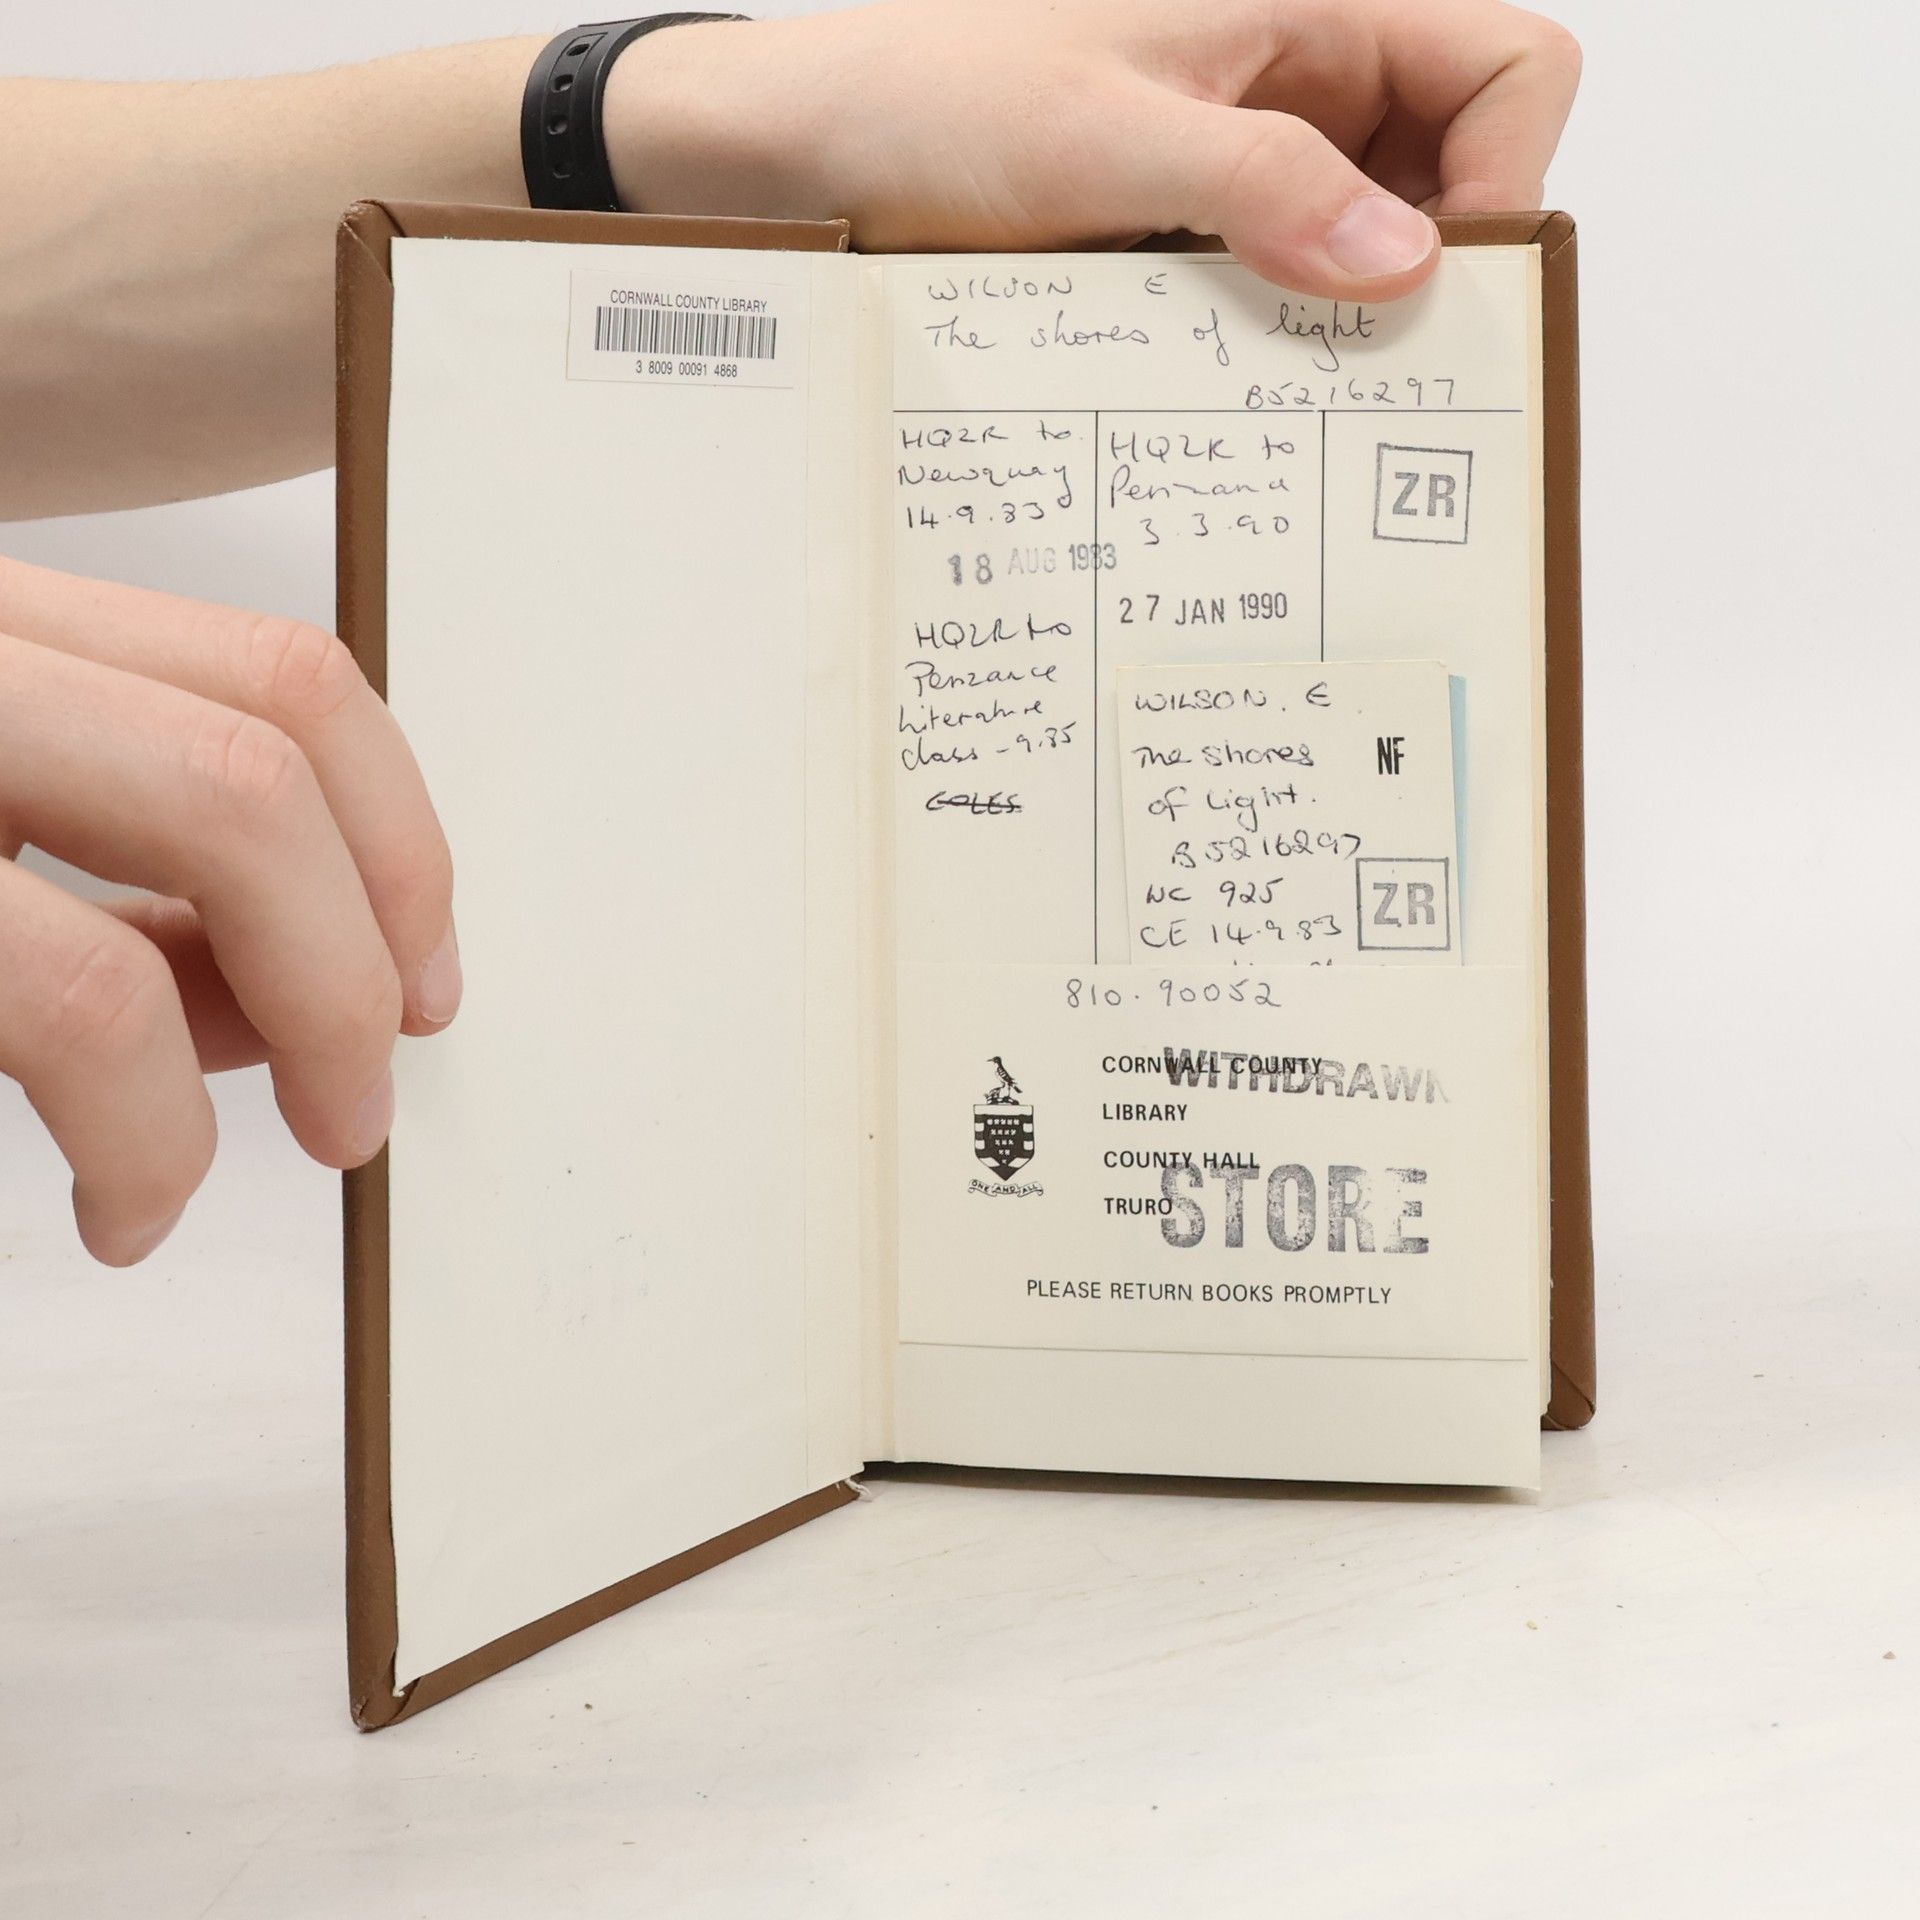 CORNWALL COUNTY LIBRARY
3 8009 00091 4868
WILSON E
The shores of light
B5216297
HQZR to
Newquay
14.9.83
18 AUG 1983
HQZR to
Penzance
Literature
class - 9.85
COLES
HQZR to
Penzance
3.3.90
27 JAN 1990
ZR
WILSON. E.
The shores
of Light.
B5216297
NC 925
CE 14.9.83
NF
ZR
810.90052
CORNWALL COUNTY
LIBRARY
COUNTY HALL
TRURO
WITHDRAWN
STORE
ONE AND ALL
PLEASE RETURN BOOKS PROMPTLY